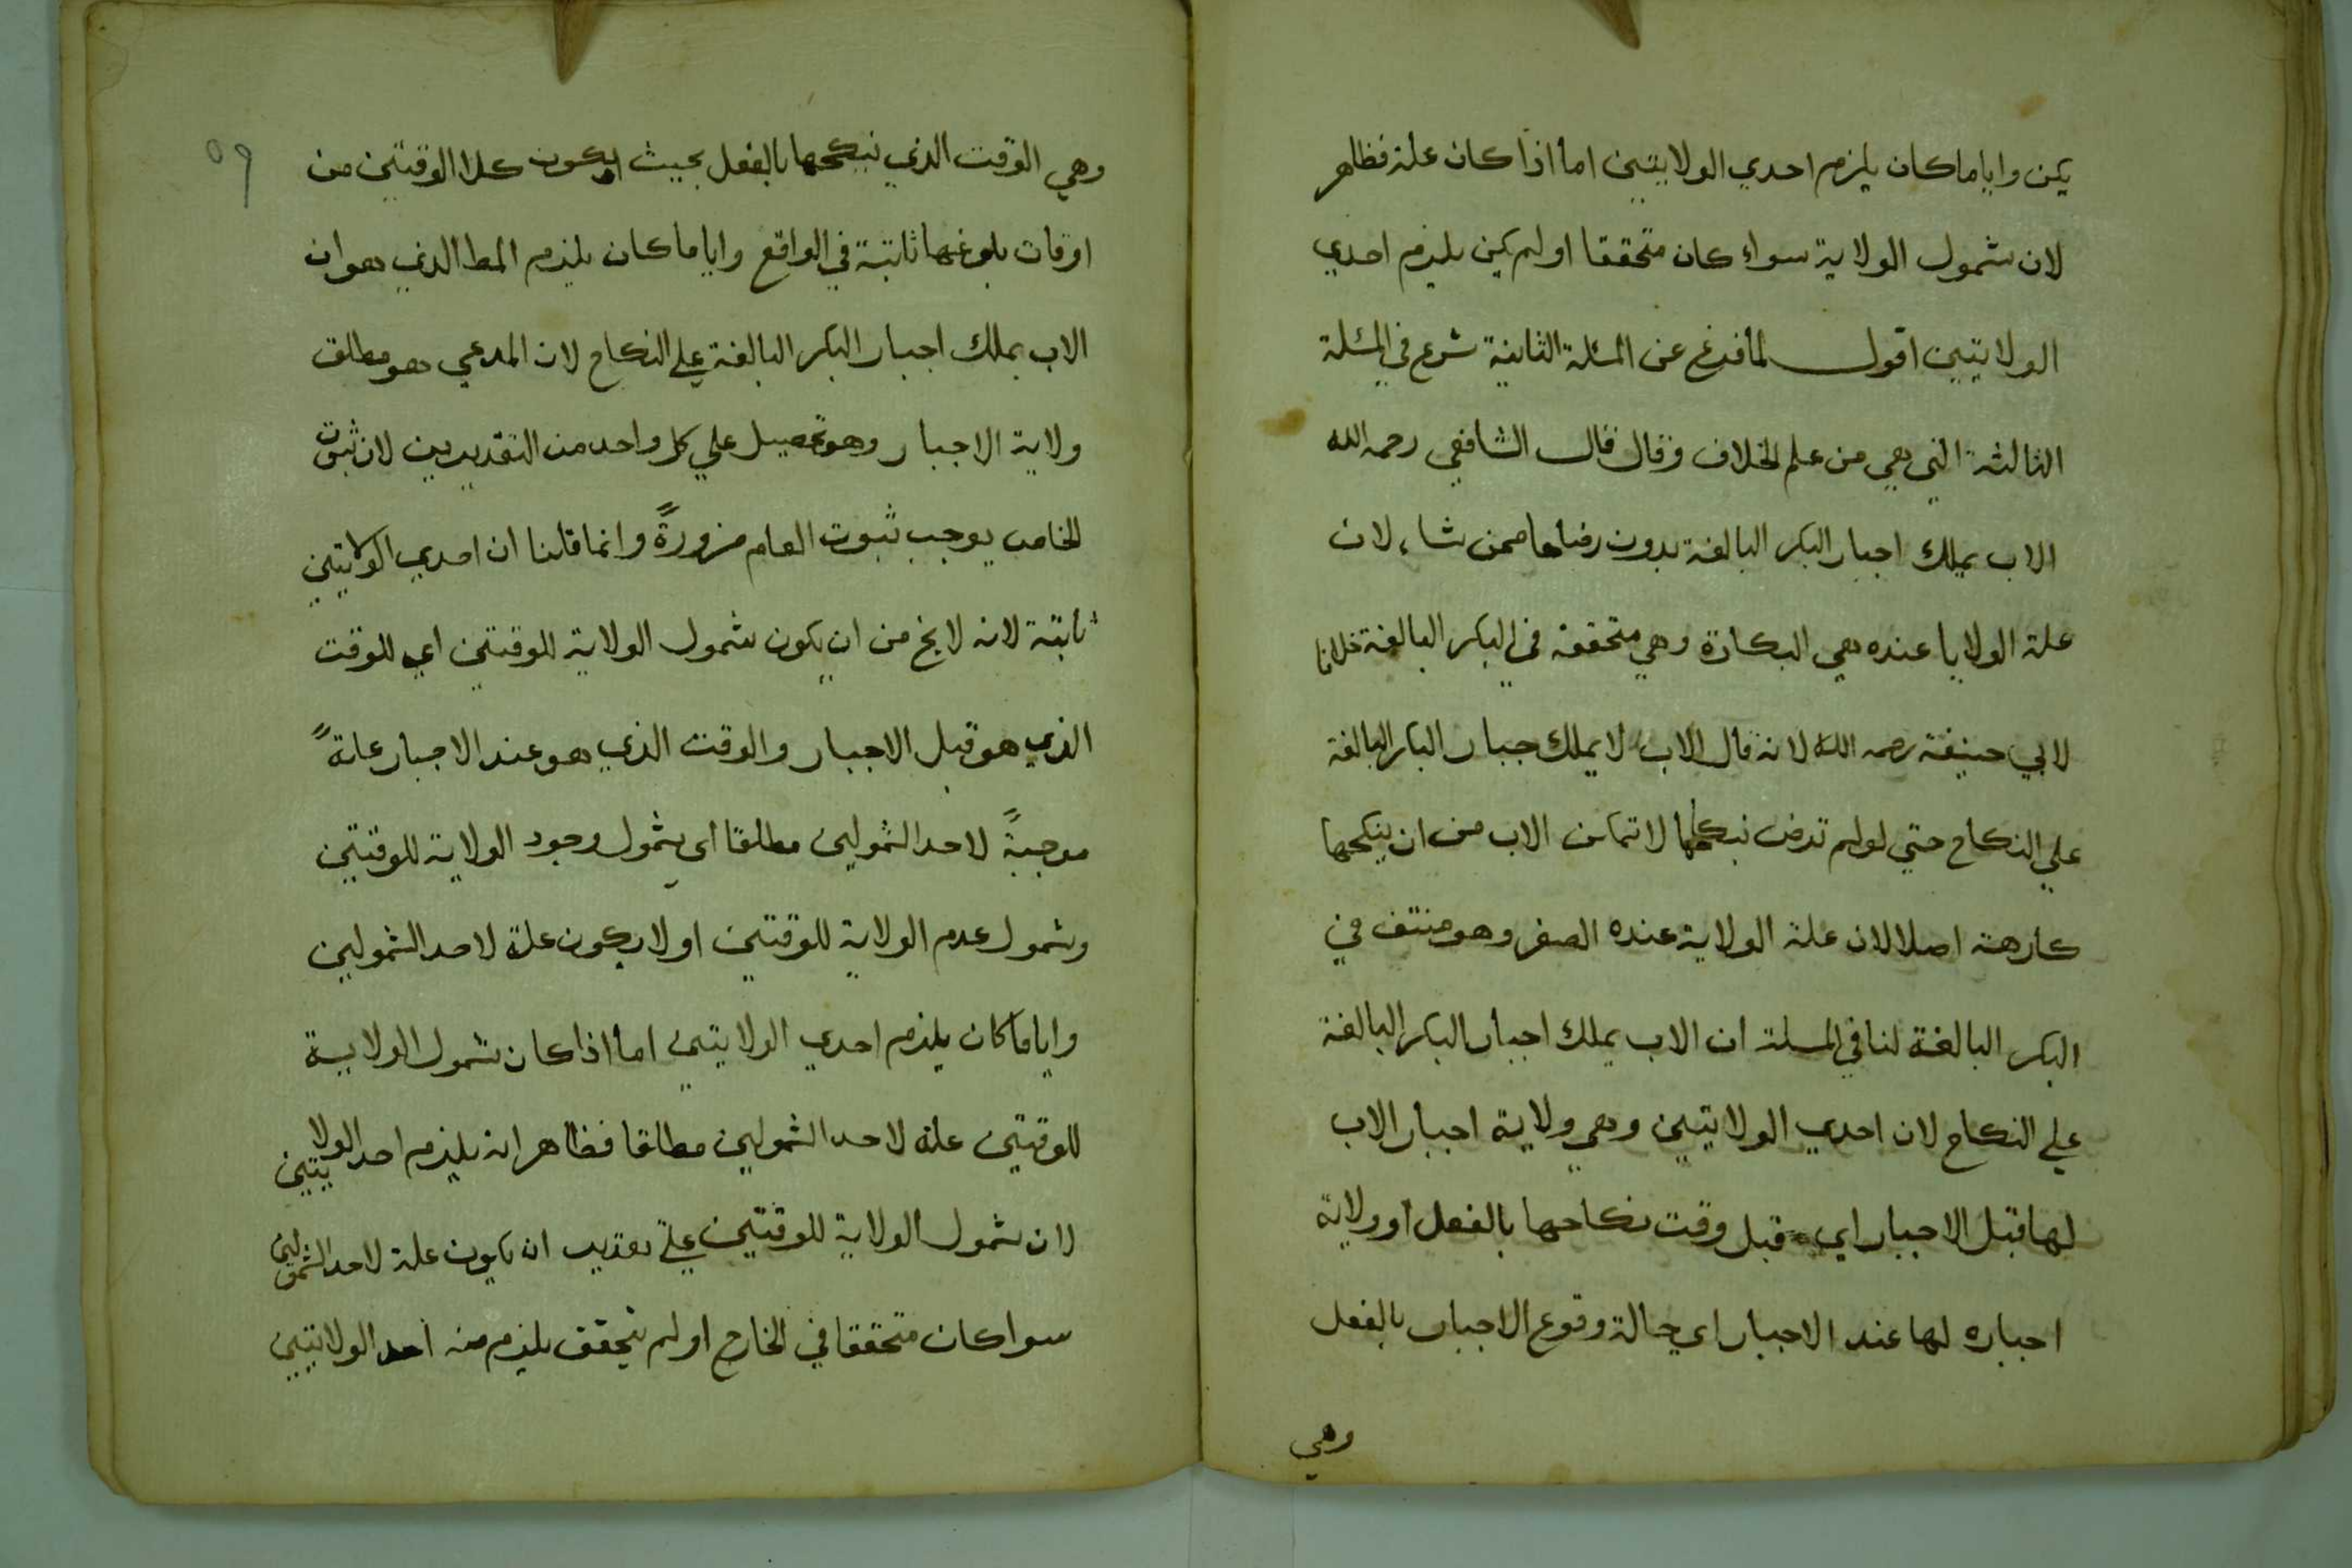 يكن واياما كان يلزم احدي الولايتين اما اذا كان علة فظاهر
لان شمول الولاية سواء كان متحققا او لم يكن يلزم احدي
الولايتين اقول لما فرغ عن المسئلة الثانية شرع في المسئلة
الثالثة التي هي من علم الخلاف وقال قال الشافعي رحمه الله
الاب يملك اجبار البكر البالغة بدون رضاها ممن شاء لان
علة الولايا عنده هي البكارة وهي متحققة في البكر البالغة خلافا
لابي حنيفة رحمه الله لانه قال الاب لا يملك جبار البكر البالغة
علي النكاح حتي لو لم ترض نبكاحها لا تمكن الاب من ان ينكحها
كارهة اصلا لان علة الولاية عنده الصغر وهو منتف في
البكر البالغة لنا في المسلة ان الاب يملك اجبار البكر البالغة
علي النكاح لان احدي الولايتين وهي ولاية اجبار الاب
لها قبل الاجبار اي قبل وقت نكاحها بالفعل او ولاية
اجباره لها عند الاجبار اي حالة وقوع الاجبار بالفعل
وهي
٥٩
وهي الوقت الذي نبكحها بالفعل بحيث يكون كلا الوقتين من
اوقات بلوغها ثابتة في الواقع واياما كان يلزم المط الذي هو ان
الاب يملك اجبار البكر البالغة علي النكاح لان المدعي هو مطلق
ولاية الاجبار وهو تحصيل علي كل واحد من التقديرين لان ثبوت
الخاص يوجب ثبوت العام ضرورةً وانما قلنا ان احدي الولايتين
ثابتة لانه لا يخ من ان يكون شمول الولاية للوقتين اي للوقت
الذي هو قبل الاجبار والوقت الذي هو عند الاجبار علةً
موجبةً لاحد الشمولين مطلقا اي شمول وجود الولاية للوقتين
وشمول عدم الولاية للوقتين اولا يكون علة لاحد الشمولين
واياما كان يلزم احدي الولايتين اما اذا كان شمول الولاية
للوقتين علة لاحد الشمولين مطلقا فظاهر انه يلزم احد الولايتين
لان شمول الولاية للوقتين علي تقدير ان يكون علة لاحد الشمولين
سوا كان متحققا في الخارج او لم يتحقق يلزم منه احد الولايتين